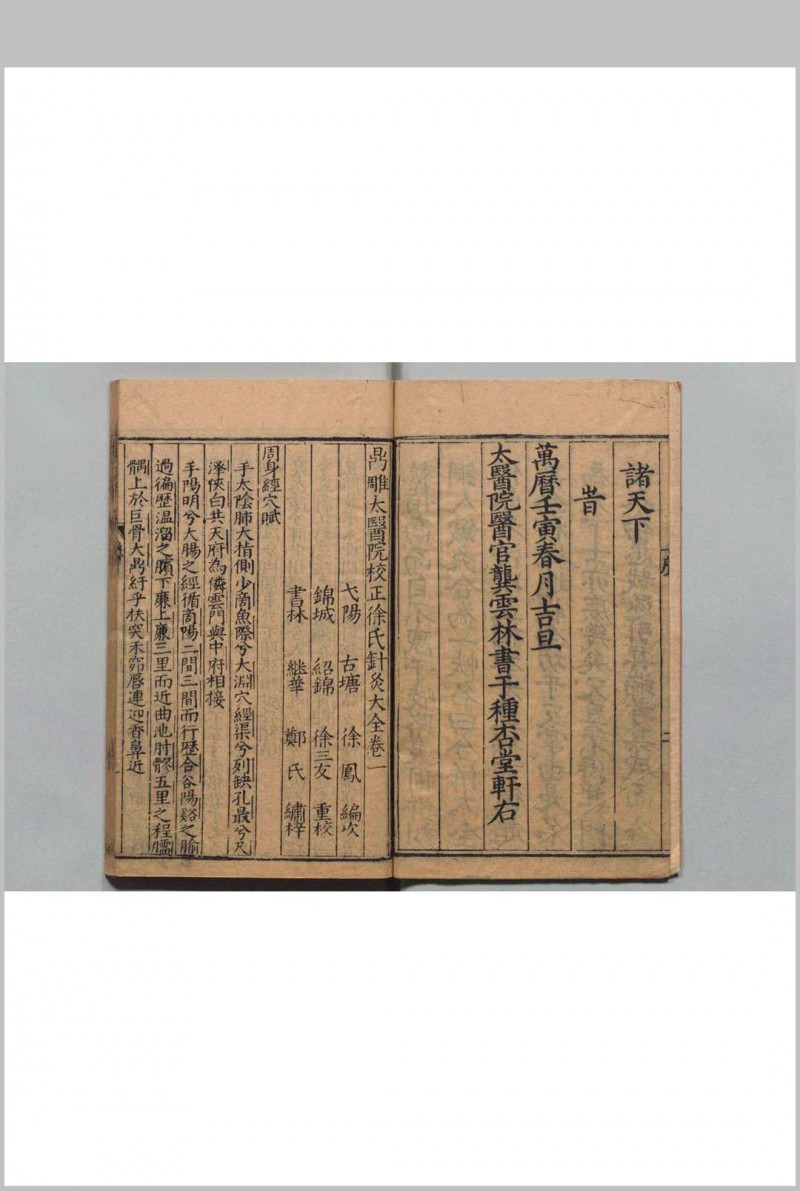 諸天下
昔
萬曆壬寅春月吉旦
太醫院醫官龔雲林書于種杏堂軒右
鼎雕太醫院校正徐氏針灸大全卷一
弋陽 古塘 徐鳳 編次
錦城 紹錦 徐三友 重校
書林 継華 鄭氏 繡梓
周身經穴賦
手太陰肺大指側少商魚際兮大淵穴經渠兮列缺孔最兮尺
澤俠白共天府為儔雲門與中府相接
手陽明兮大腸之經循商陽二間三間而行歷合谷陽谿之腧
過徧歷溫溜之臏下廉上廉三里而近曲池肘髎五里之程臑
髃上於巨骨大鼎紆乎扶突禾窌唇連迎香鼻近